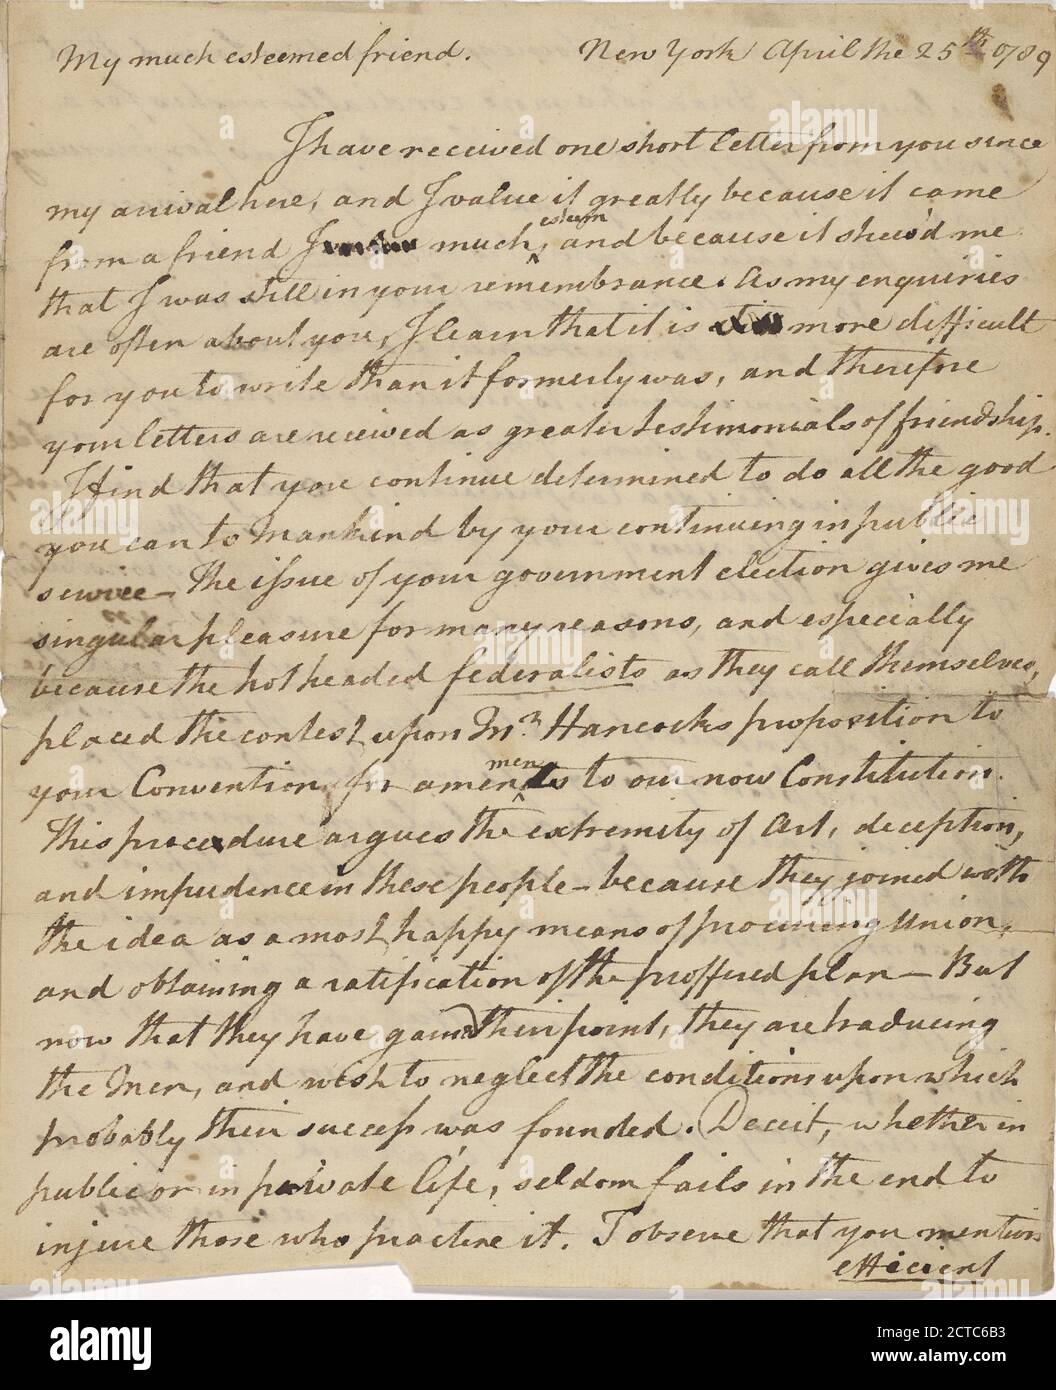 My much esteemed friend. New York April the 25th 1789
I have received one short letter from you since
my arival here, and I value it greatly because it came
esteem
from a friend I much, and because it shew'd me
that I was still in your remembrance. As my enquiries
are often about you, I learn that it is more difficult
for you to write than it formerly was, and therefore
your letters are received as greater testimonials of friendship.
I find that you continue determined to do all the good
you can to Mankind by your continuing in public
service — The issue of your government election gives me
singular pleasure for many reasons, and especially
because the hot headed federalists as they call themselves,
placed the contest upon Mr. Hancocks proposition to
men
your Convention for amends to our now Constitution.
This procedure argues the extremity of Art, deception,
and impudence in these people – because they joined with
the idea as a most happy means of procuring Union,
and obtaining a ratification of the proffered plan — But
now that they have gaind their point, they are traducing
the Men, and wish to neglect the conditions upon which
probably their success was founded. Deceit, whether in
public or in private life, seldom fails in the end to
injure those who practice it. I observe that you mention
efficient
alamy
Image ID: 2CTC6B3
www.alamy.com